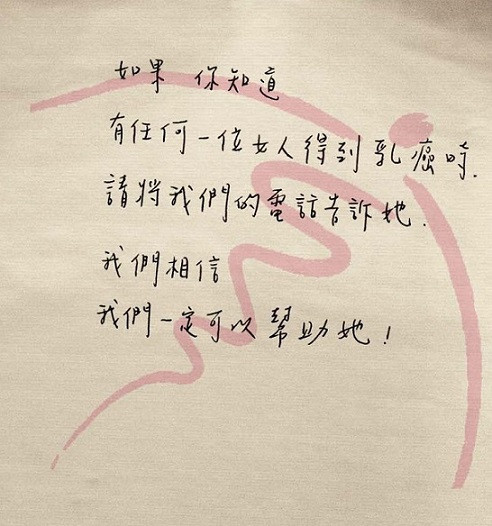 如果 你知道
有任何一位女人得到乳癌時.
請將我們的電話告訴她.
我們相信
我們一定可以幫助她!